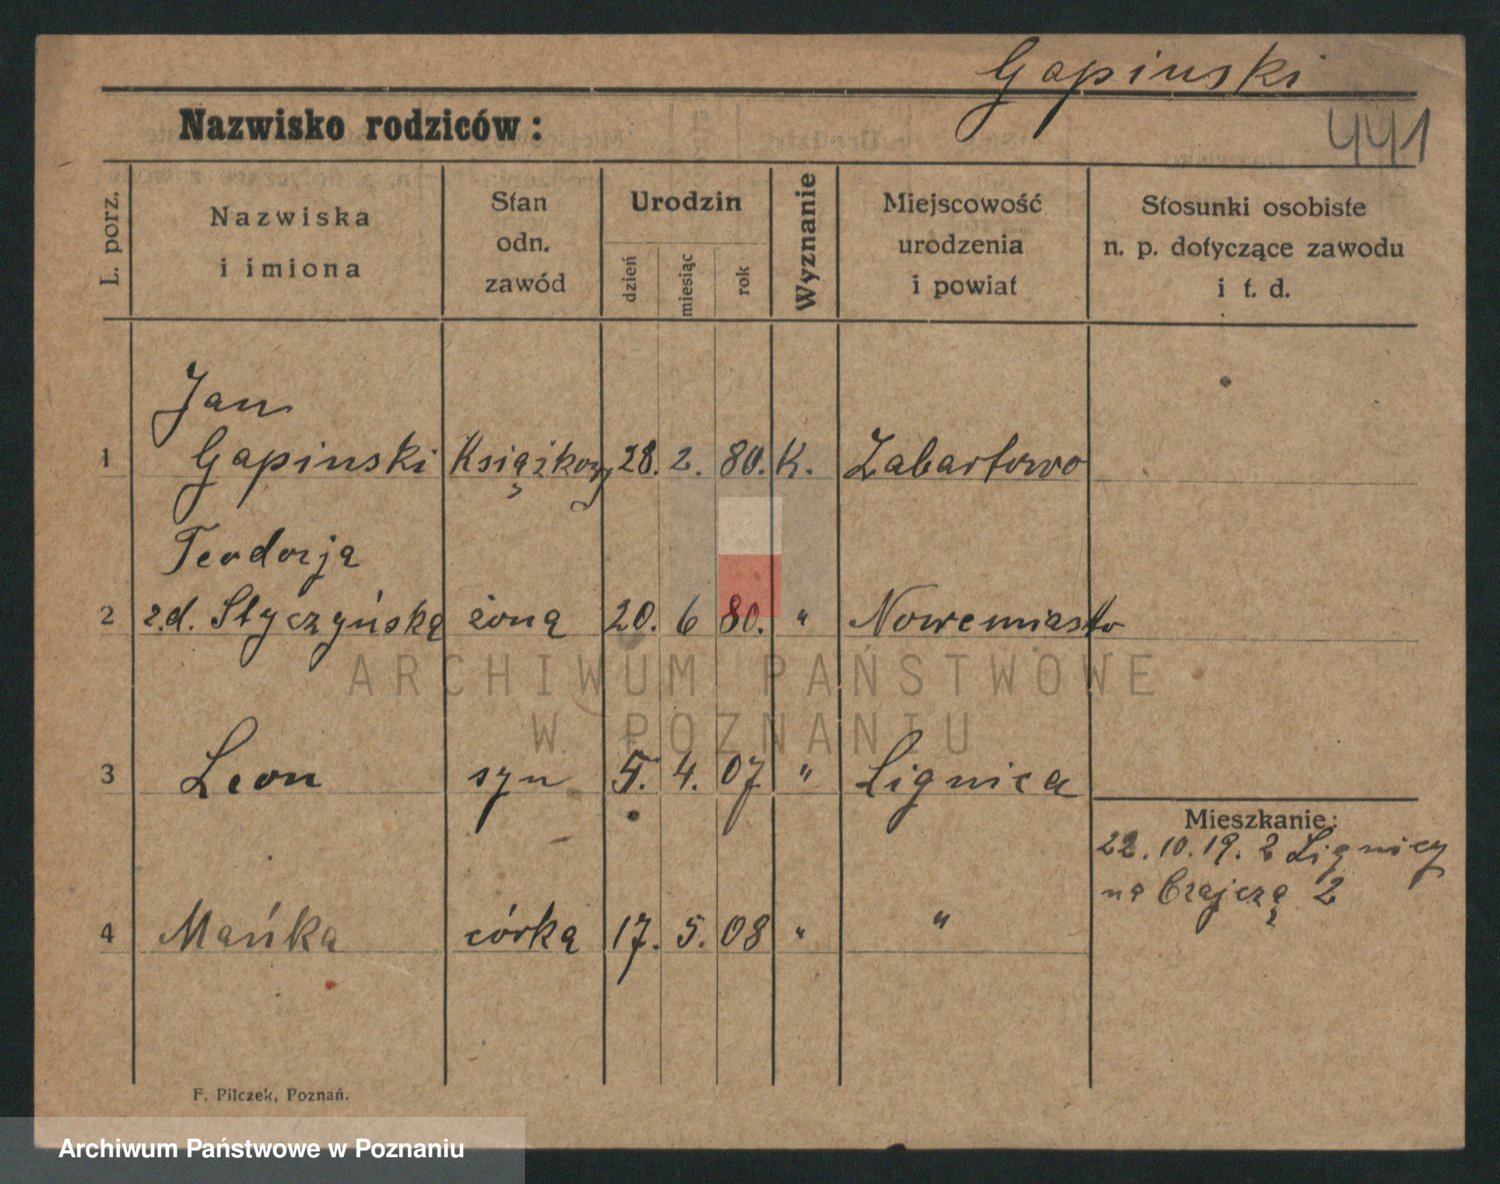 Gapinski
Nazwisko rodziców:
441
L. porz.
Nazwiska
i imiona
Stan
odn.
zawód
Urodzin
dzień
miesiąc
rok
Wyznanie
Miejscowość
urodzenia
i powiat
Stosunki osobiste
n. p. dotyczące zawodu
i t. d.
Jan
1 Gapinski Książkowy 28. 2. 80. K. Zabartowo
Teodorją
2 z.d. Styczyńską żoną 20. 6 80. " Nowemiasto
3 Leon syn 5. 4. 07 " Lignica
Mieszkanie:
22.10.19. z Lignicy
na 2
4 Mańka córką 17. 5. 08 " "
F. Pilczek, Poznań.
ARCHIWUM PAŃSTWOWE
W POZNANIU
Archiwum Państwowe w Poznaniu